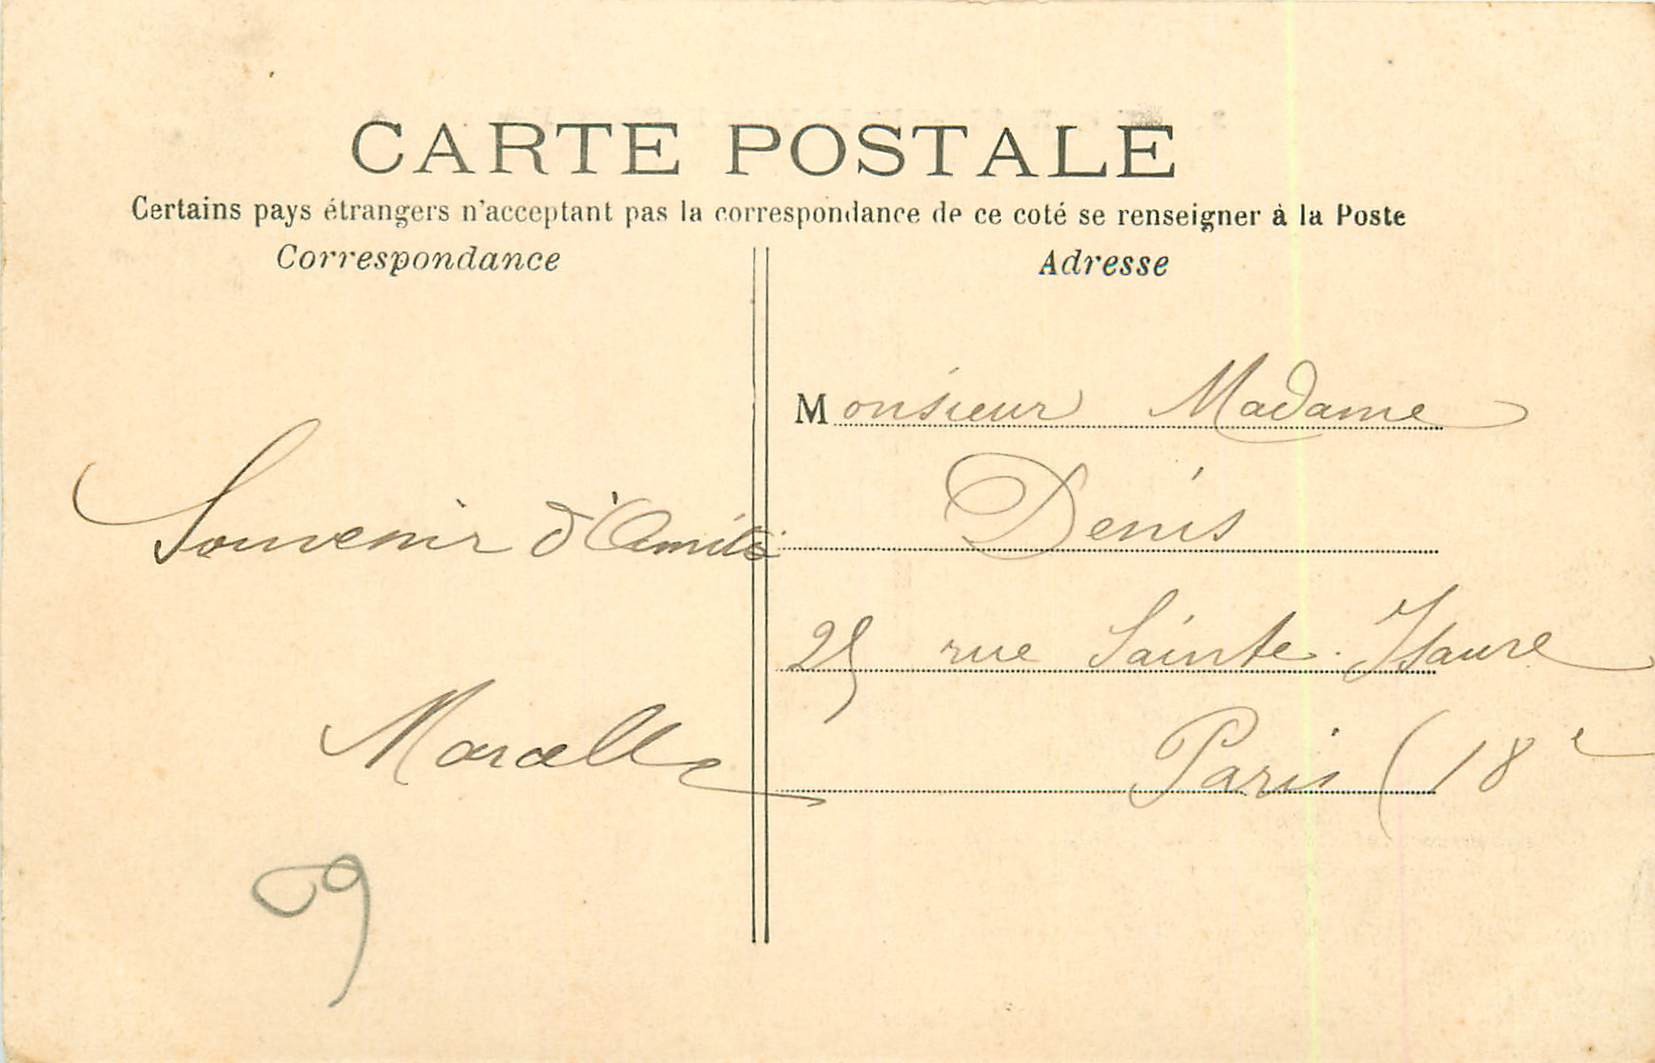 CARTE POSTALE
Certains pays étrangers n'acceptant pas la correspondance de ce coté se renseigner à la Poste
Correspondance
Adresse
Souvenir d'Amitié
Marcelle
09
Monsieur Madame
Denis
25 rue Sainte-Isaure
Paris (18e